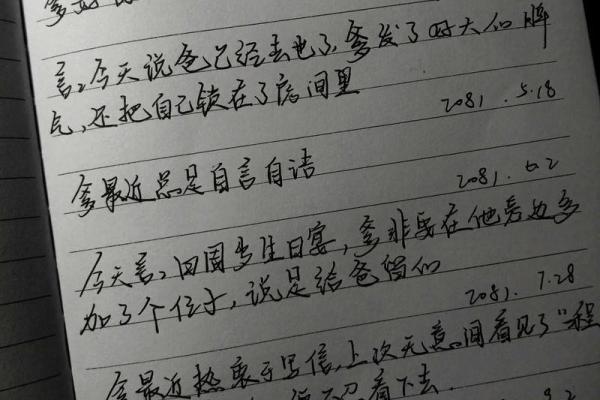 言。今天说爸已经去世了，爹发了好大的脾
气，还把自己锁在了房间里
2081.5.18
爹最近总是自言自语
2081.6.2
今天言。回国办生日宴，爹非要在他旁边多
加了个位子，说是给爸留的
2081.7.28
爹最近热衷于写信，上次无意间看见了“程
看下去.